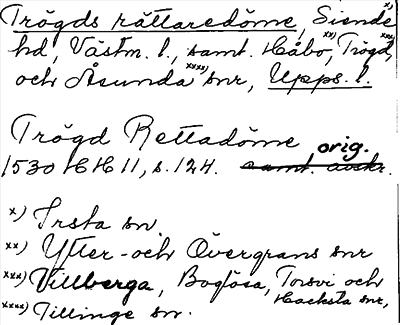 Trögds rättaredöme, Siende x)
hd, Västm. l., samt Håbo xx), Trögd xxx)
och Åsunda xxxx) snr, Upps. l.
Trögd Rettadöme orig.
1530 HH 11, s. 124. samt. avskr.
x) Irsta sn
xx) Ytter- och Övergrans snr
xxx) Villberga, Boglösa, Torsvi och
Hacksta snr,
xxxx) Tillinge sn.